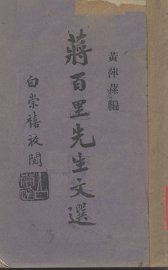 黃萍蓀編
蔣百里先生文選
白崇禧校閱